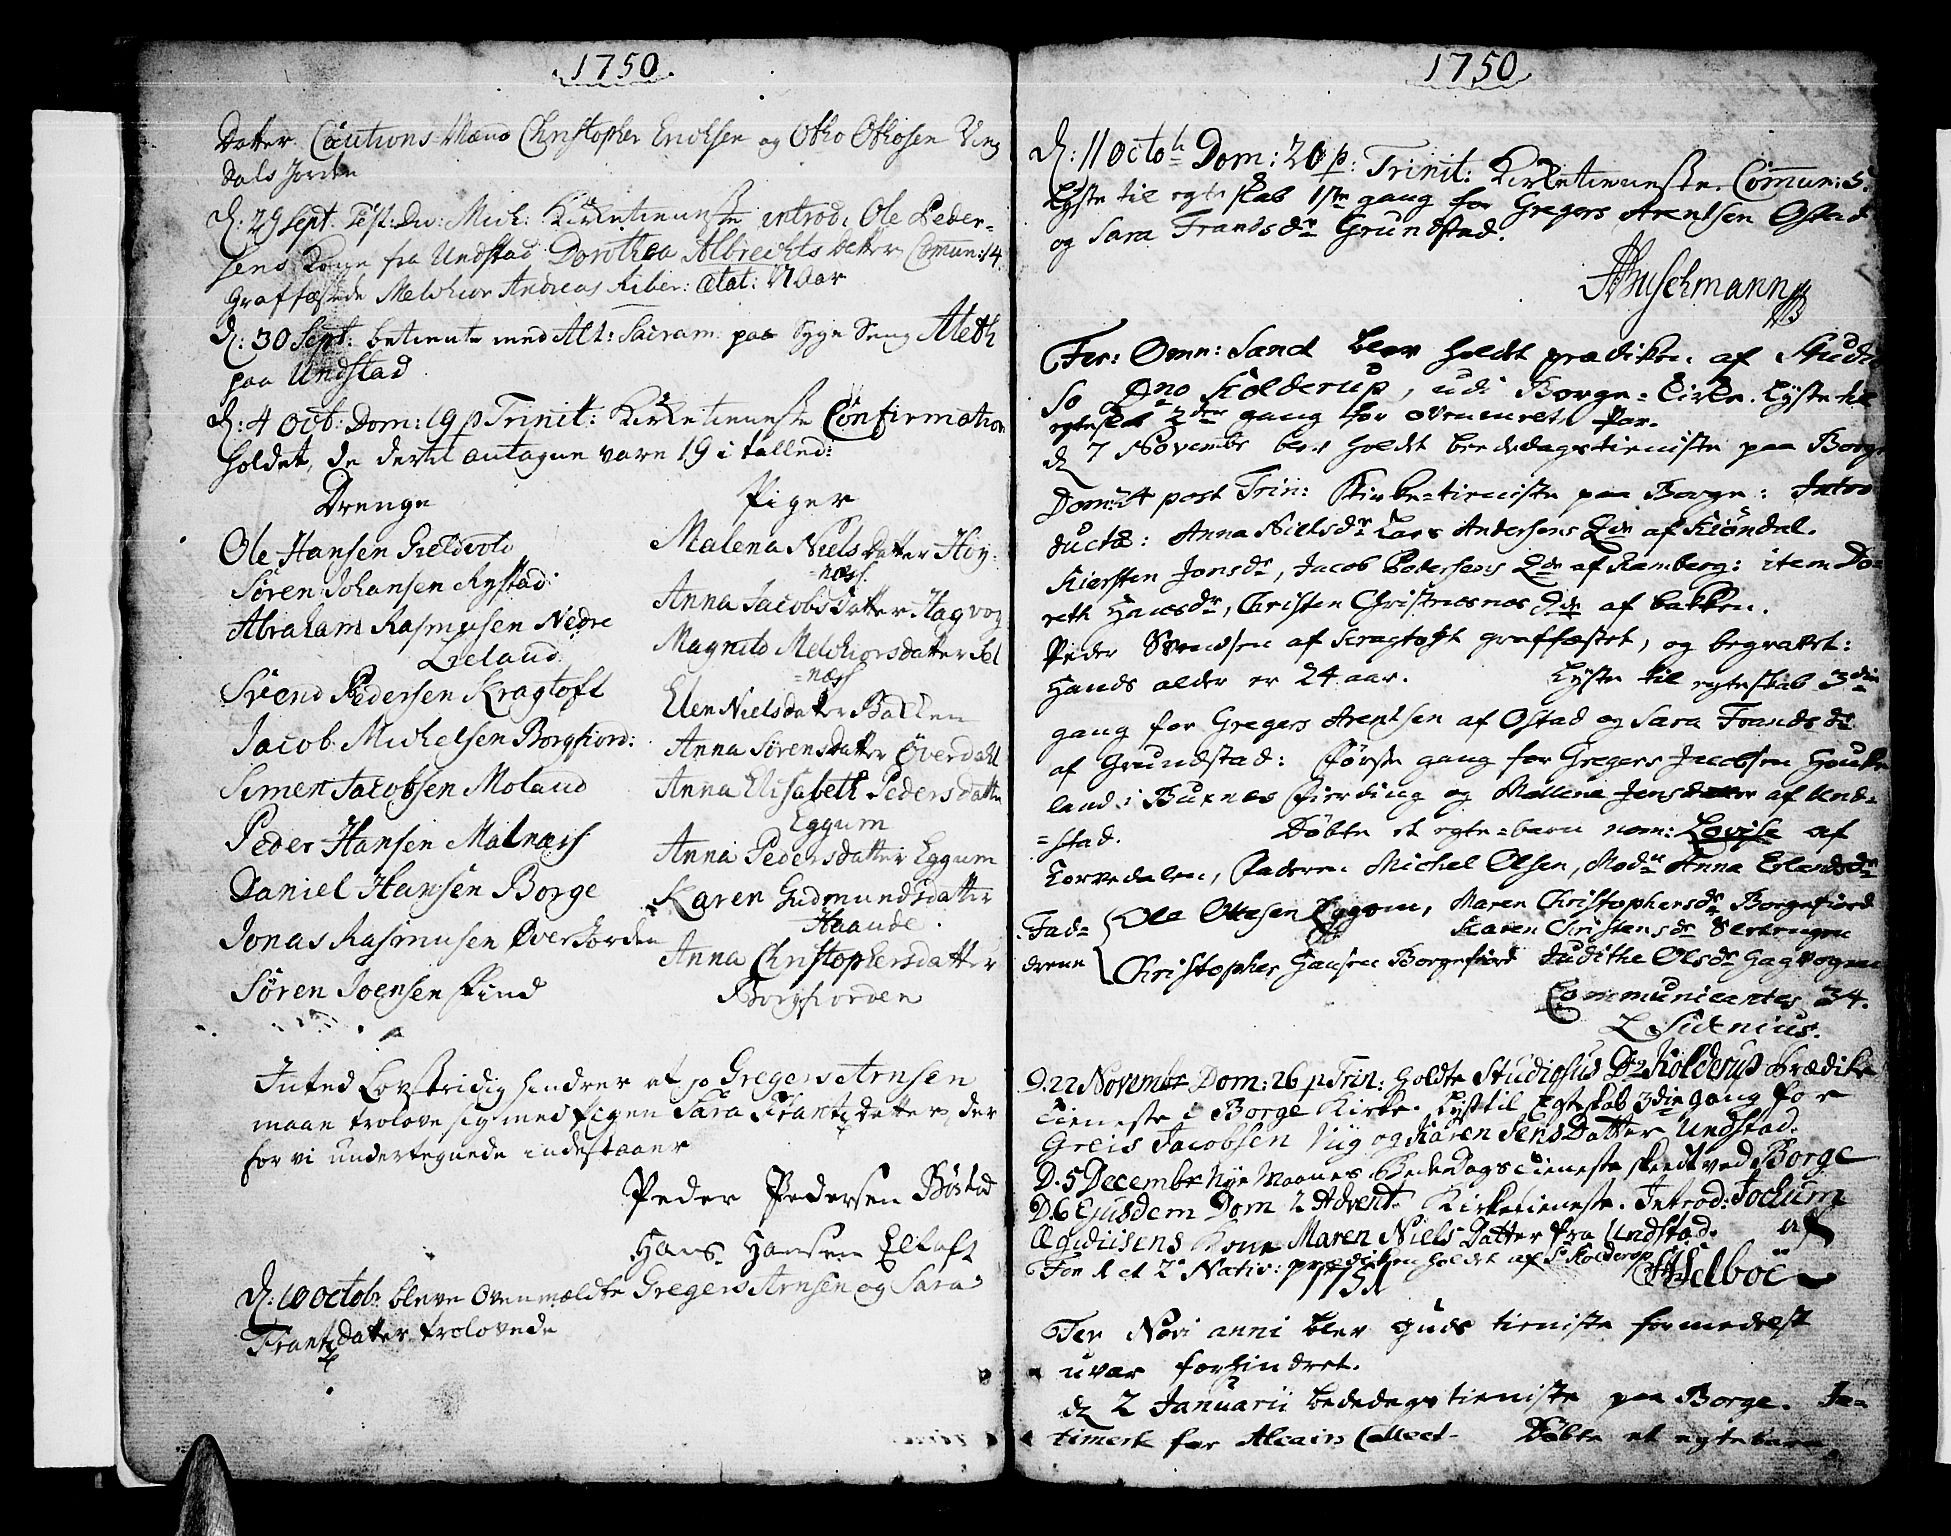 1750
Datter. Cautions Mænd Christopher Erichsen og Otho Othosen Ving
dals Jorden
D: 29 Sept: Fest: Div: Mich: Kirketienneste introd: Ole Peder-
sens Kone fra Undstad Dorothea Albrechts datter Comun: 14.
Graffæstede Melchior Andreas Riber: ætat:
D: 30 Sept: betient med Alt: Sacram: paa Syge Seng Aleth
paa Undstad
D: 4 Oct: Dom: 19 p Trinit: Kirketienneste Confirmation
holdet, de dertil antagne vare 19 i talled:
Drenge
Ole Hansen
Søren Johansen Rystad
Abraham Rasmusen Nedre
Leland
Svend Pedersen Kragtoft
Jacob Michelsen Borgfiord:
Simen Jacobsen Moland
Peder Hansen Malnæss
Daniel Hansen Borge
Jonas Rasmusen Øverjorden
Søren Joensen Find
Piger
Malena Niels datter Høy-
=næss.
Anna Jacobs datter Hagvog
Magnild Melchiorsdatter Sel
=næss
Elen Nielsdatter Bakken
Anna Sørensdatter Øverdahl
Anna Elisabeth Pedersdatter
Eggum
Anna Pedersdatter Eggum
Karen Gudmundsdatter
Haande
Anna Christophersdatter
Borgfiorden
Inted Lovstridig hindrer at jo Gregers Arnsen
maae trolove sig med Pigen Sara Frantz datter, der
for vi undertegnede indestaaer
Peder Pedersen Bøstad
Hans Hansen Eltoft
D: 10 Octob: bleve ovenmældte Gregers Arnsen og Sara
Frantz datter trolovede
1750
D: 11 Octob Dom: 20 p: Trinit: Kirketienneste. Comun: 5.
Lyste til egteskab 1ste gang for Gregers Arentsen Ostad
og Sara Frandsdr Grundstad.
Buschmann
Fer: Omn: Sanct blev holdt prædiken af Studio
so Dno Kolderup, udi Borge-Kirke. Lyste til
egteskab 2den gang for ovenmelte Par.
d 7 Novembr blev holdt bededagstieniste paa Borge
Dom: 24 post Trin: Kirke-tieniste paa Borge: Intro
ductæ: Anna Nielsdr Lars Andersens Qde af Kiøndal.
Kiersten Jonsdr, Jacob Pedersens Qde af Ramberg: item Do-
reth Hansdr, Christen Qde af bakken.
Peder Svendsen af Kragtoft graffæstet, og begravet:
Hands alder er 24 aar. Lyste til egteskab 3die
gang for Gregers Arentsen af Ostad og Sara Frandsdr
af Grundstad: første gang for Gregers Jacobsen Hauke
land i Buxnes fierding og Mallena Jensdatter af Und-
=stad. Døbte et egte-barn nom: Lovise af
Torvedalen, Faderen Michel Olsen, Modr Anna Erlandsdr
Fad-
drene
Ole Ottesen Eggom, Maren Christophersdr Borgefiord
Karen Christensdr
Christopher Hansen Borgefiord Judithe Olsdr Hagvogen
Communicantes 34.
L Sidenius.
D. 22 Novembr Dom: 26 p Trin: holdte Studiosus Dn Kolderup Prædike
tieneste i Borge Kirke. Lyst til Egteskab 3die gang for
Greis Jacobsen Viig og Karen JensDatter Undstad.
D. 5 Decembr Nye Maanes BedeDags tieneste skeedt ved Borge
D. 6 Ejusdem Dom 2 Advent Kirketieneste. Introd: Jochum
Ægidiisens Kone Maren NielsDatter fra Undstad. af
Fer 1 et 2 Nativ: prædiken holdet af Sr Kolderup
Helboe
1751
Fer Novi anni blev Guds tieniste formedelst
uvær forhindret.
d 2 Januarii bededagstieniste paa Borge. In-
timert for Collect. Døbte et egtebarn